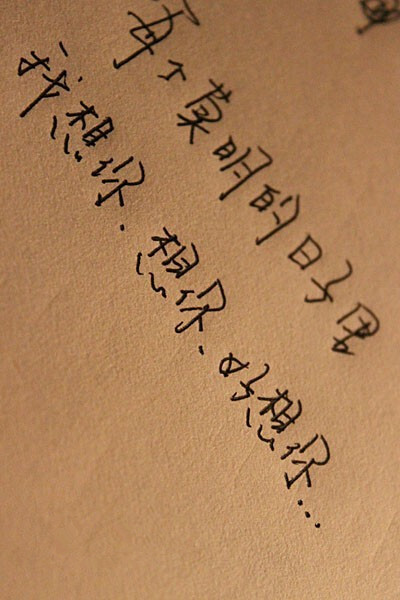 每个莫明的日子里
我想你.想你、好想你...